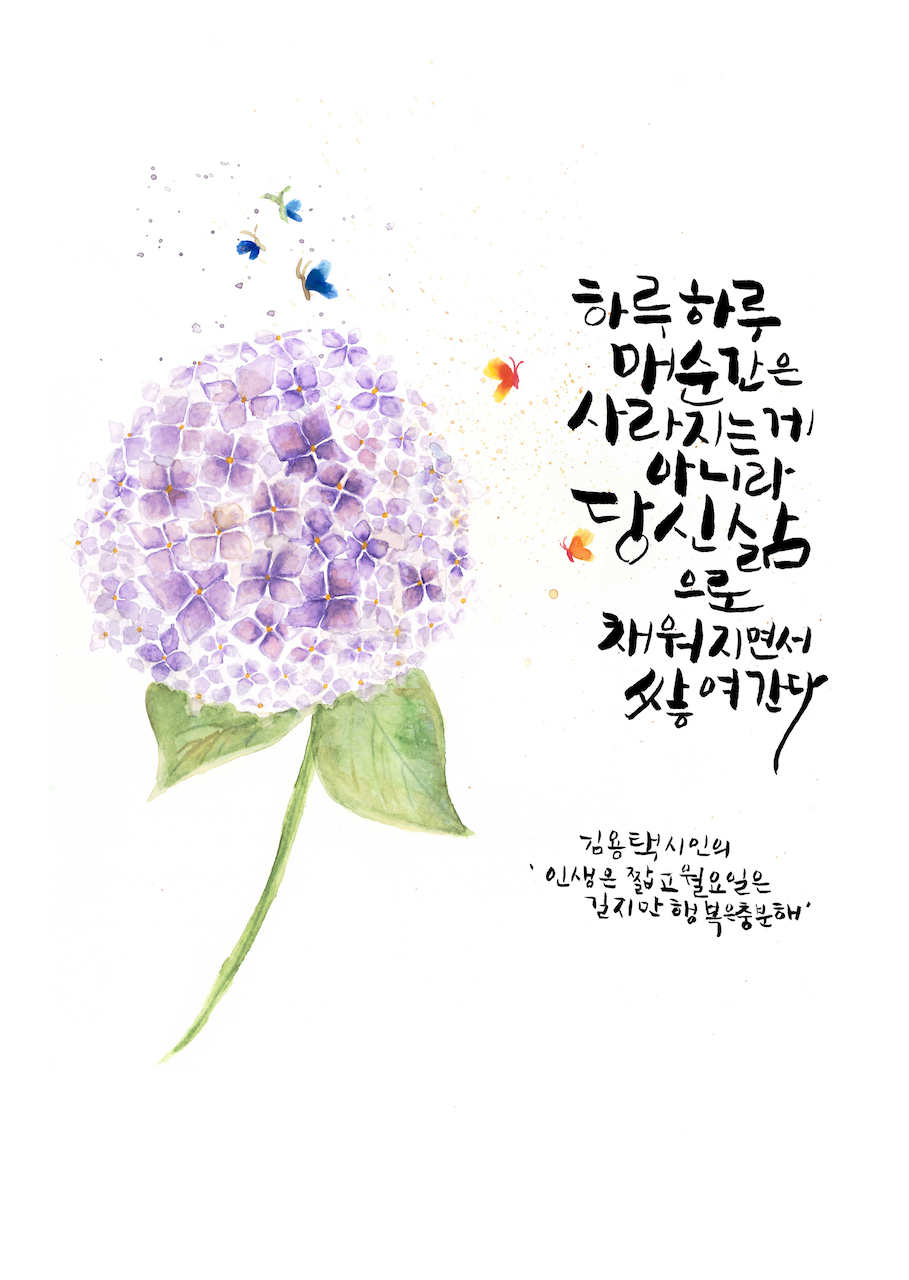 하루하루
매순간은
사라지는게
아니라
당신삶
으로
채워지면서
쌓여간다
김용택시인의
'인생은 짧고 월요일은
길지만 행복은충분해'